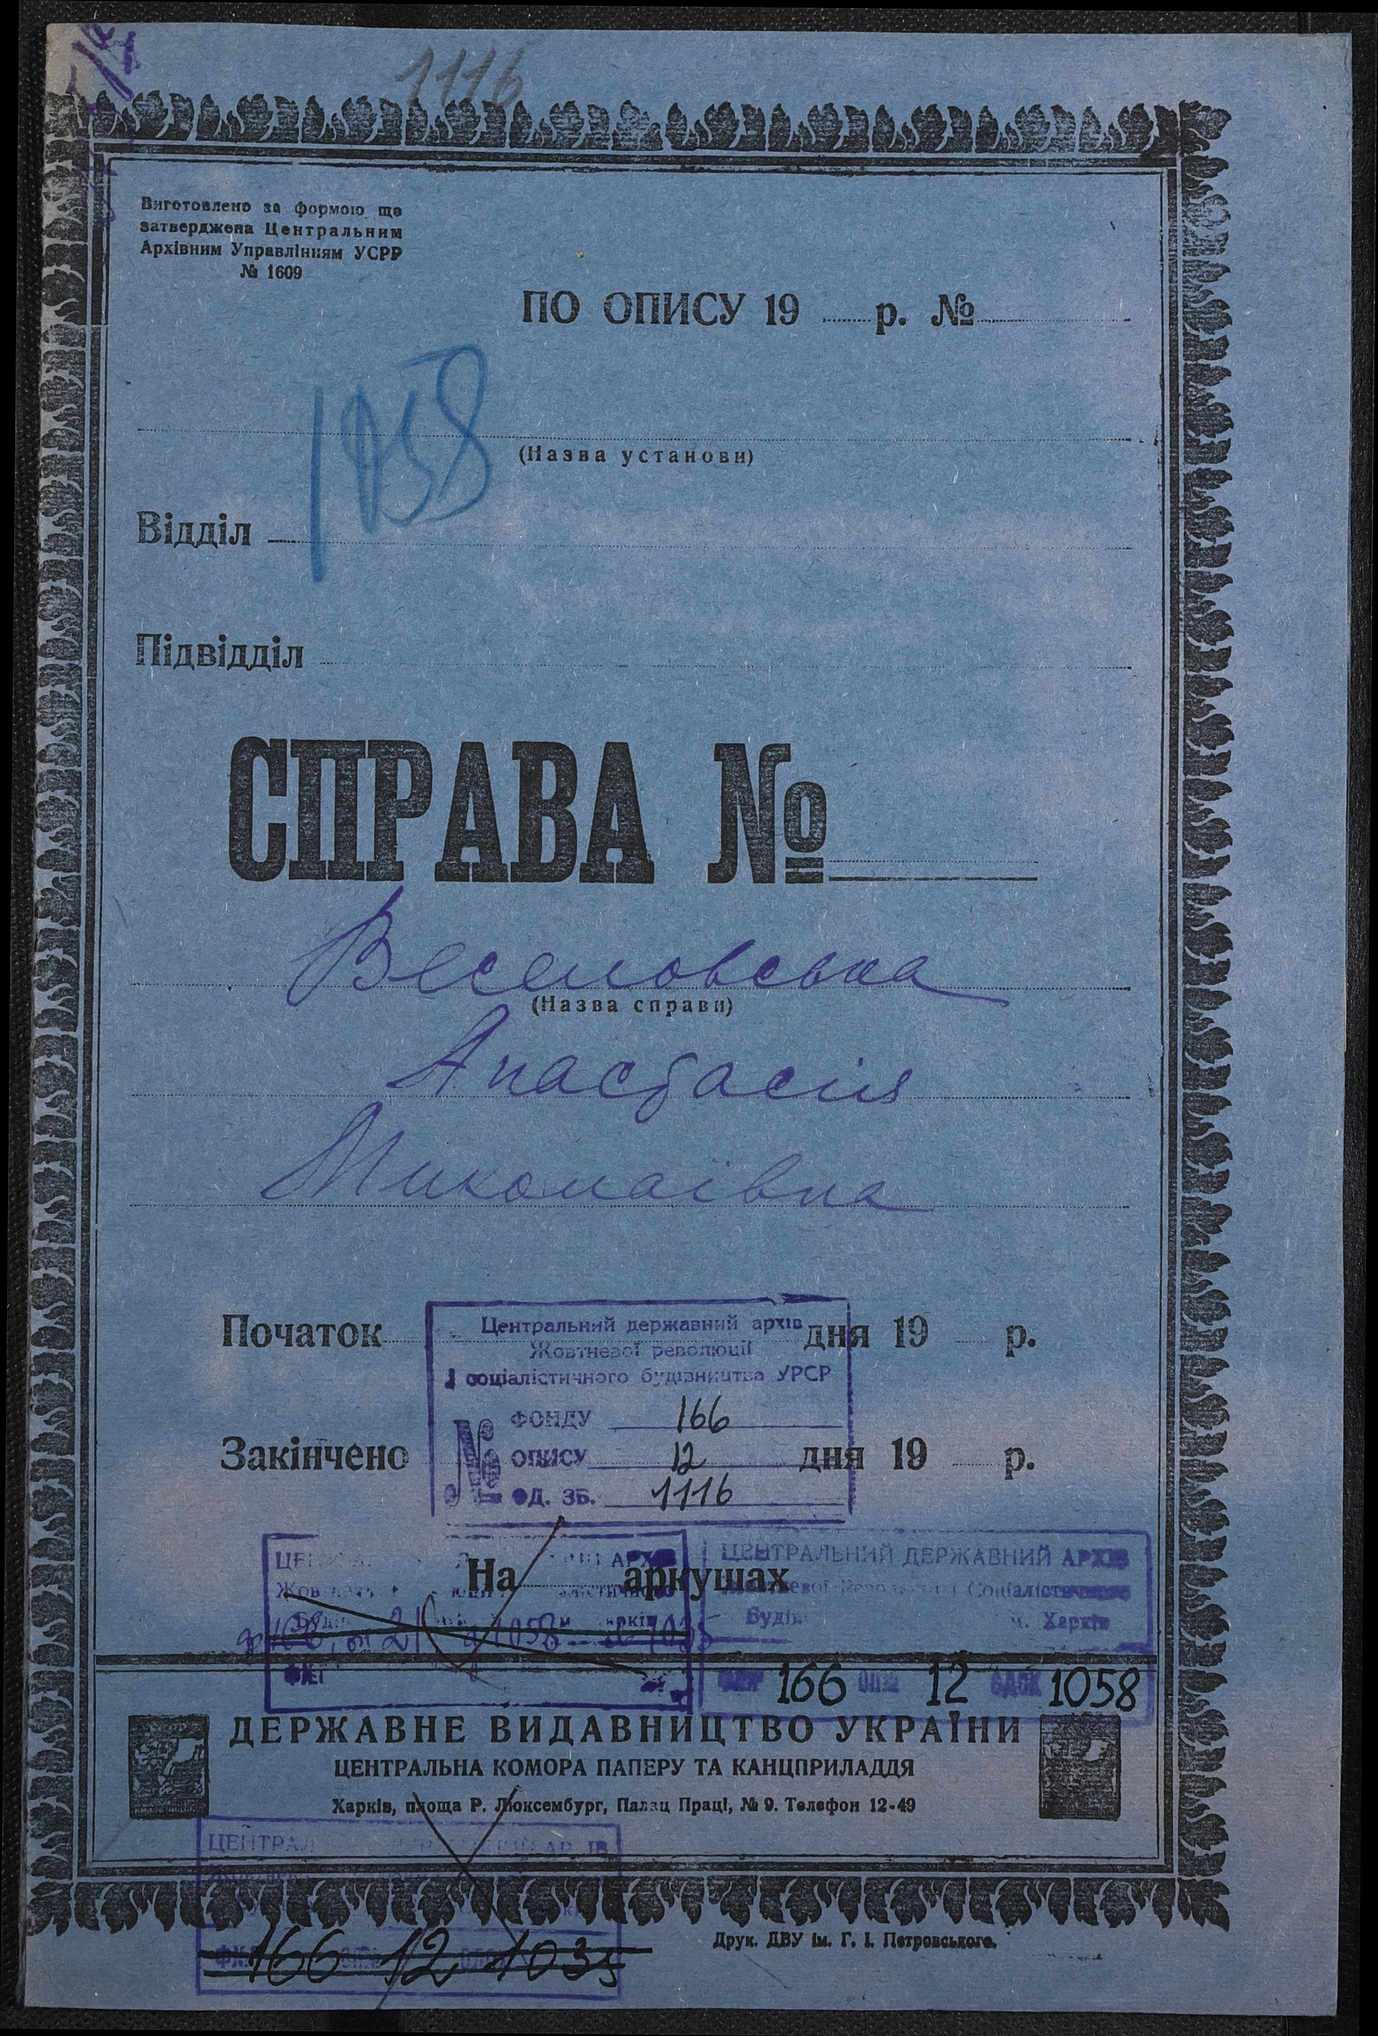 1116
Виготовлено за формою що
затверджена Центральним
Архівним Управлінням УСРР
№ 1609
ПО ОПИСУ 19 р. №
1058
(Назва установи)
Відділ
Підвідділ
СПРАВА №
Веселовська
(Назва справи)
Анастасія
Миколаївна
Початок дня 19 р.
Центральний державний архів
Жовтневої революції
і соціалістичного будівництва УРСР
№ ФОНДУ 166
ОПИСУ 12
ОД. ЗБ. 1116
Закінчено дня 19 р.
На аркушах
ЦЕНТРАЛЬНИЙ ДЕРЖАВНИЙ АРХІВ
Жовтневої Революції і Соціалістичного
Будів м. Харків
166 12 1058
ДЕРЖАВНЕ ВИДАВНИЦТВО УКРАЇНИ
ЦЕНТРАЛЬНА КОМОРА ПАПЕРУ ТА КАНЦПРИЛАДДЯ
Харків, площа Р. Люксембург, Палац Праці, № 9. Телефон 12-49
166 12 1035
Друк. ДВУ ім. Г. І. Петровського.